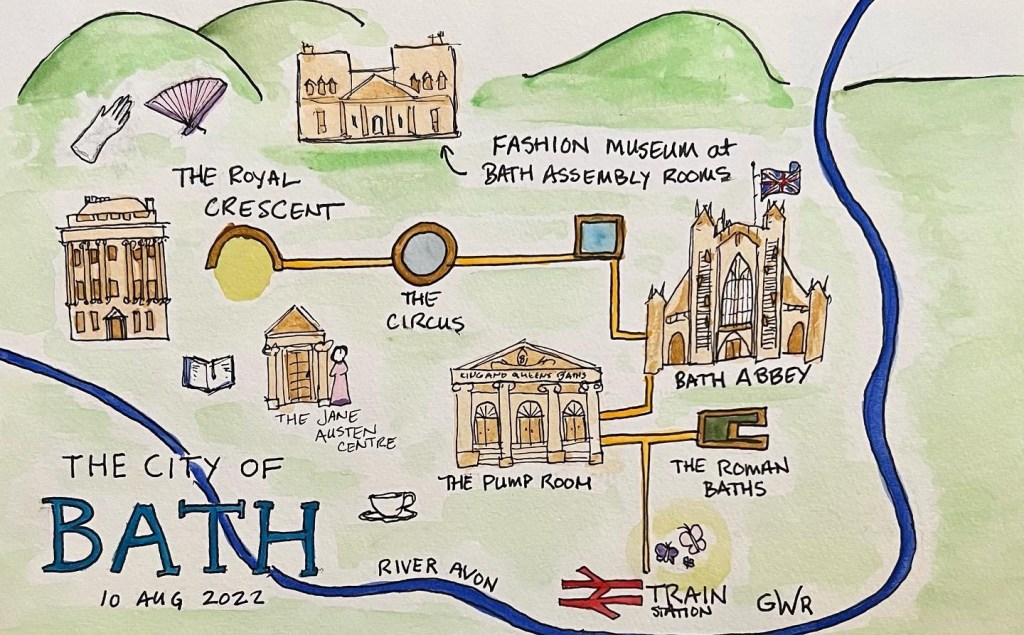 FASHION MUSEUM at
BATH ASSEMBLY ROOMS
THE ROYAL
CRESCENT
THE
CIRCUS
BATH ABBEY
KING AND QUEENS BATHS
THE JANE
AUSTEN
CENTRE
THE PUMP ROOM
THE ROMAN
BATHS
THE CITY OF
BATH
10 AUG 2022
RIVER AVON
TRAIN
STATION
GWR